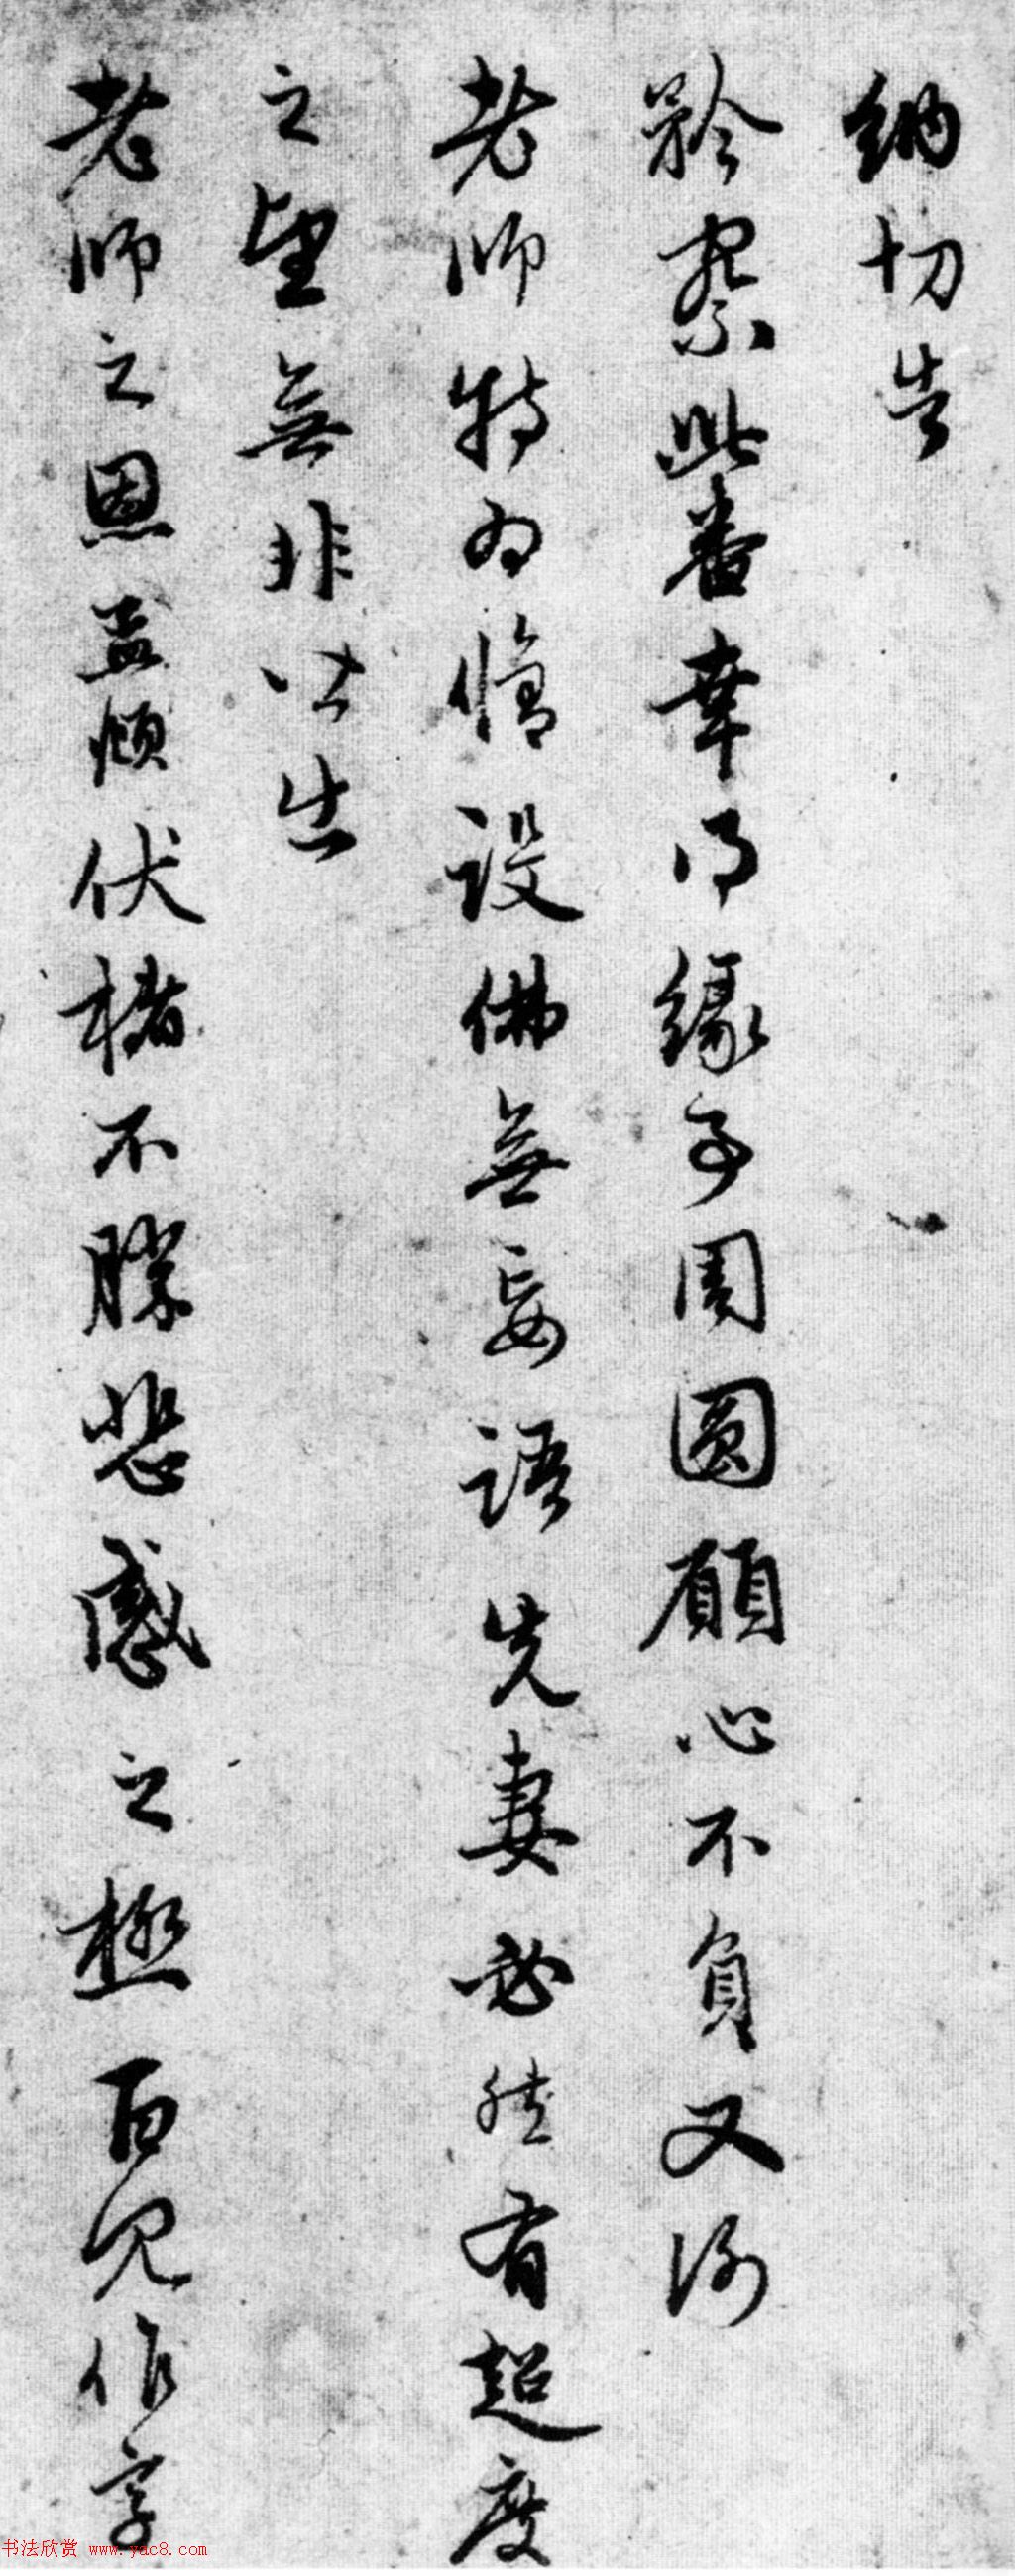 納切告
矜察此番幸得緣事周圓願心不負又許
老師特為脩設佛無妄語先妻必然有超度
之望無非皆出
老師之恩孟頫伏楮不勝悲感之極百冗作字
书法欣赏 www.yac8.com